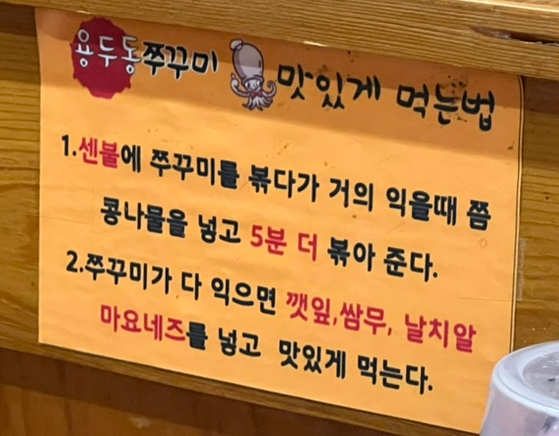 용두동쭈꾸미 맛있게 먹는법
1.센불에 쭈꾸미를 볶다가 거의 익을때 쯤
콩나물을 넣고 5분 더 볶아 준다.
2.쭈꾸미가 다 익으면 깻잎,쌈무, 날치알
마요네즈를 넣고 맛있게 먹는다.